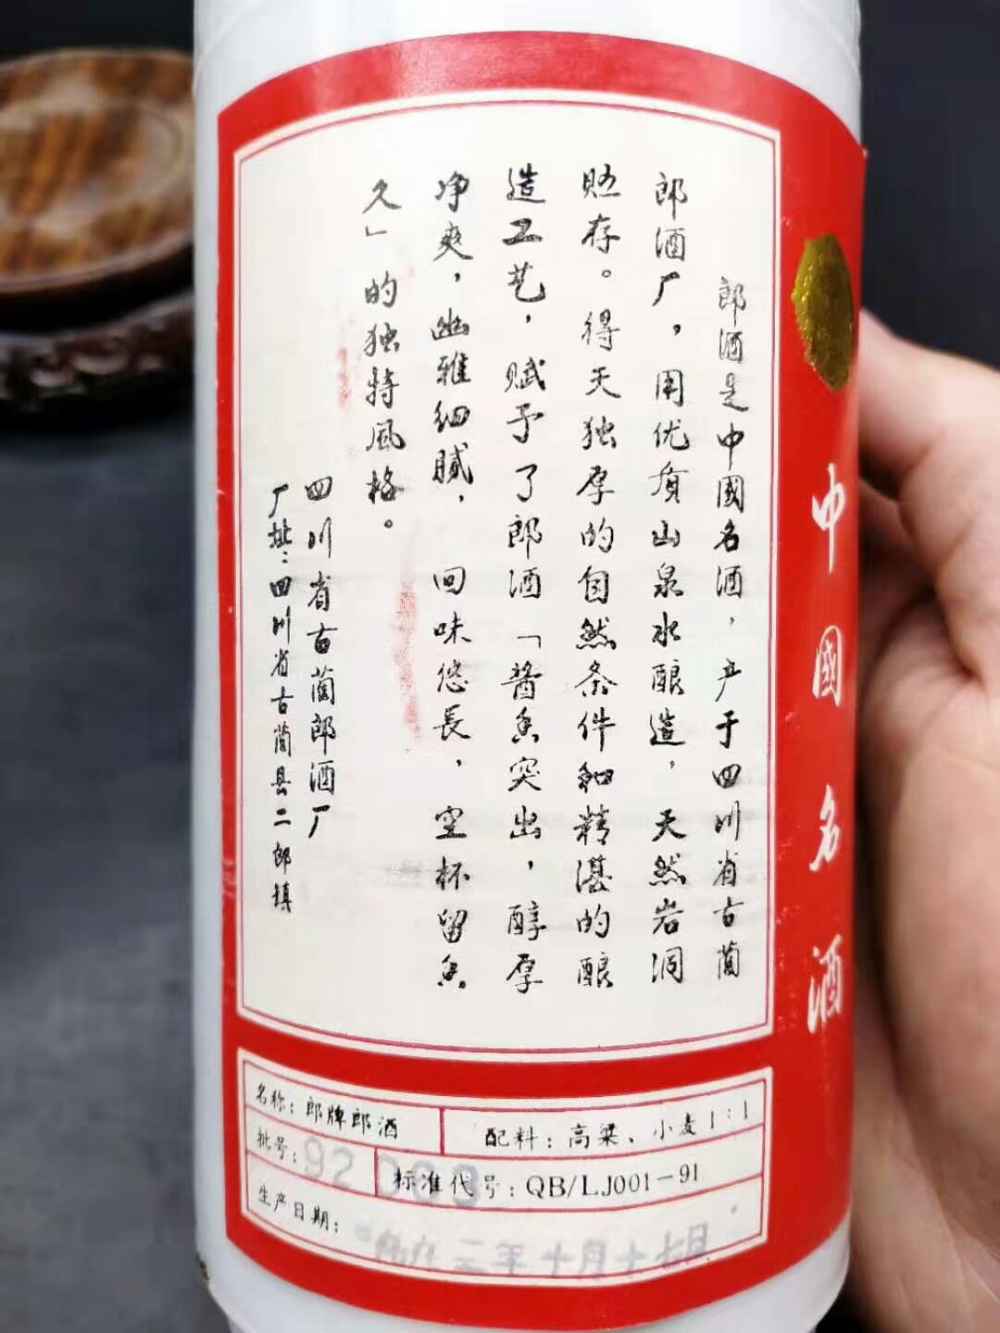 郎酒是中國名酒，产于四川省古蔺
郎酒厂，用优质山泉水酿造，天然岩洞
贮存。得天独厚的自然条件和精湛的酿
造工艺，赋予了郎酒「酱香突出，醇厚
净爽，幽雅细腻，回味悠長，空杯留香
久」的独特風格。
四川省古蔺郎酒厂
厂址：四川省古蔺县二郎镇
中國名酒
名称：郎牌郎酒
配料：高粱、小麦1：1
批号：92
标准代号：QB/LJ001-91
生产日期：
一九九二年十月十七日